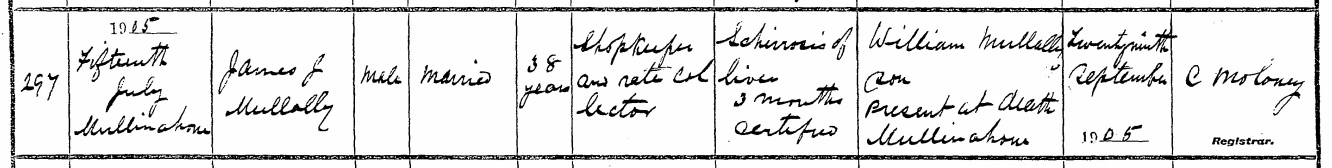 297
1905
Fifteenth
July
Mullinahone
James J
Mullally
Male
Married
38
years
Shopkeeper
and rate col
lector
Schirrosis of
liver
3 months
certified
William Mullally
son
Present at death
Mullinahone
Twentyninth
September
1905
C Moloney
Registrar.